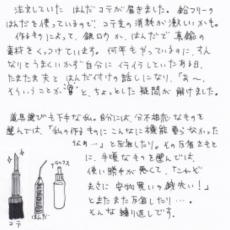 注文していた はんだコテが届きました。鉛フリーの
はんだを使っているので、コテ先の消耗が激しいかも。
作るものによって、銀ロウか、はんだで真鍮の
素材をくっつけています。何年もやっているのに、すん
なりとうまくいかず自分にイライラしていたある日、
たまたま夫と はんだ付けの話しになり、「あ〜、
そういうことか!」と、ちょっとした疑問が解けました。
道具選びも下手な私。自分には、分不相応なものを
選んでは、「私の作るものにこんなに機能要らなかった
なぁ…」と反省したり。その反省をもと
に、手頃なものを選んでは、
使い勝手が悪くて、「これぞ
まさに 安物買いの銭失い!」
とまたまた反省したり…。
そんな繰り返しです。
コテ
はんだ
フラックス